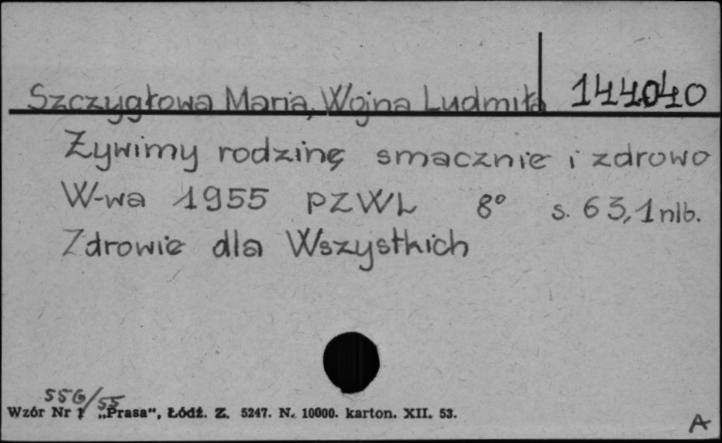 Szczygłowa Maria, Wojna Ludmiła 144040
Żywimy rodzinę smacznie i zdrowo
W-wa 1955 PZWL 8° s. 63,1nlb.
Zdrowie dla Wszystkich
556/55
Wzór Nr 1 „Prasa“, Łódź. Z. 5247. N. 10000. karton. XII. 53.
A